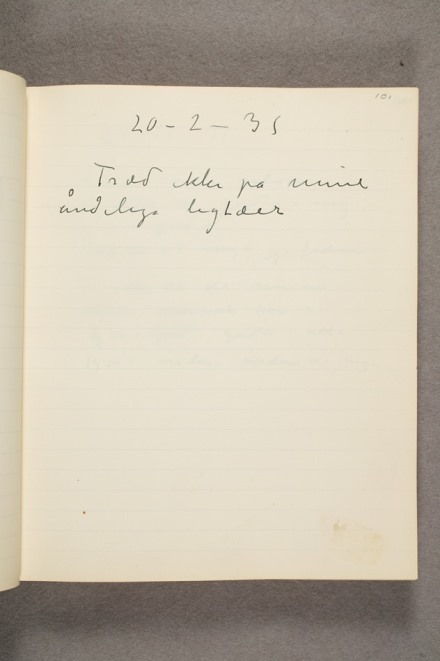 101
20-2-35
Træd ikke på mine
åndelige ligtæer